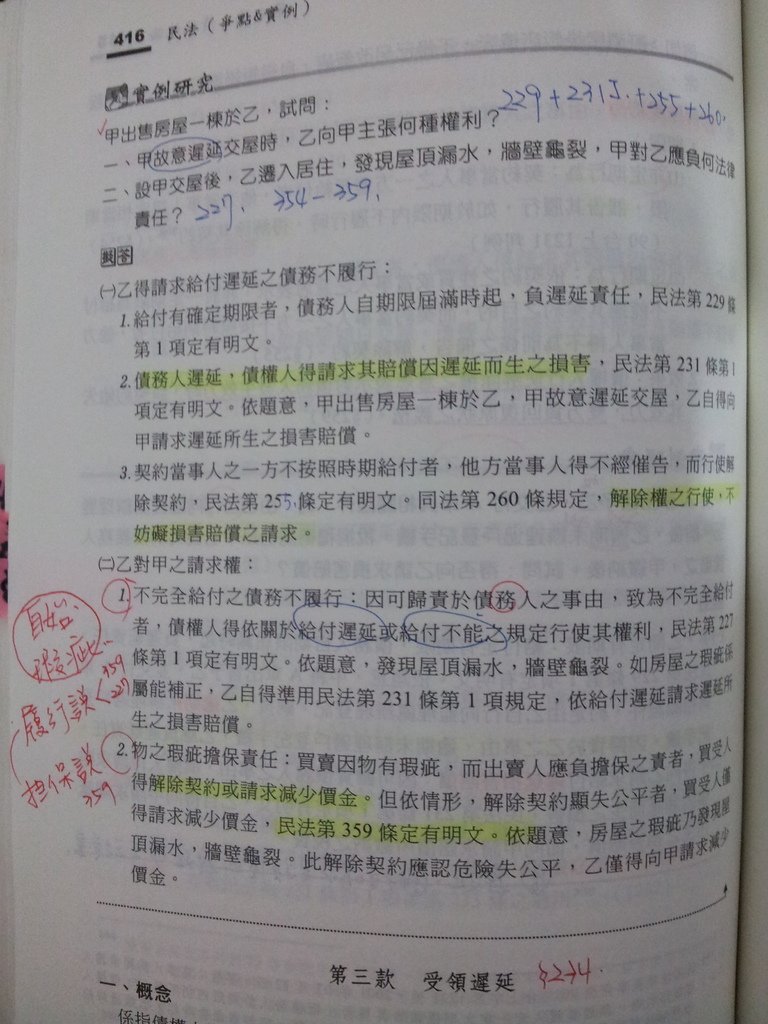 416 民法（爭點&實例）
實例研究
甲出售房屋一棟於乙，試問：
229+231I.+255+260.
一、甲故意遲延交屋時，乙向甲主張何種權利？
二、設甲交屋後，乙遷入居住，發現屋頂漏水，牆壁龜裂，甲對乙應負何法律
責任？ 227、 354-359、
擬答
㈠乙得請求給付遲延之債務不履行：
1.給付有確定期限者，債務人自期限屆滿時起，負遲延責任，民法第229條
第1項定有明文。
2.債務人遲延，債權人得請求其賠償因遲延而生之損害，民法第231條第1
項定有明文。依題意，甲出售房屋一棟於乙，甲故意遲延交屋，乙自得向
甲請求遲延所生之損害賠償。
3.契約當事人之一方不按照時期給付者，他方當事人得不經催告，而行使解
除契約，民法第255條定有明文。同法第260條規定，解除權之行使，不
妨礙損害賠償之請求。
㈡乙對甲之請求權：
1.不完全給付之債務不履行：因可歸責於債務人之事由，致為不完全給付
者，債權人得依關於給付遲延或給付不能之規定行使其權利，民法第227
條第1項定有明文。依題意，發現屋頂漏水，牆壁龜裂。如房屋之瑕疵係
屬能補正，乙自得準用民法第231條第1項規定，依給付遲延請求遲延所
生之損害賠償。
自始
瑕疵
履行說 359
227
担保說
359
2.物之瑕疵擔保責任：買賣因物有瑕疵，而出賣人應負擔保之責者，買受人
得解除契約或請求減少價金。但依情形，解除契約顯失公平者，買受人僅
得請求減少價金，民法第359條定有明文。依題意，房屋之瑕疵乃發現屋
頂漏水，牆壁龜裂。此解除契約應認危險失公平，乙僅得向甲請求減少
價金。
第三款 受領遲延 §234.
一、概念
係指債權